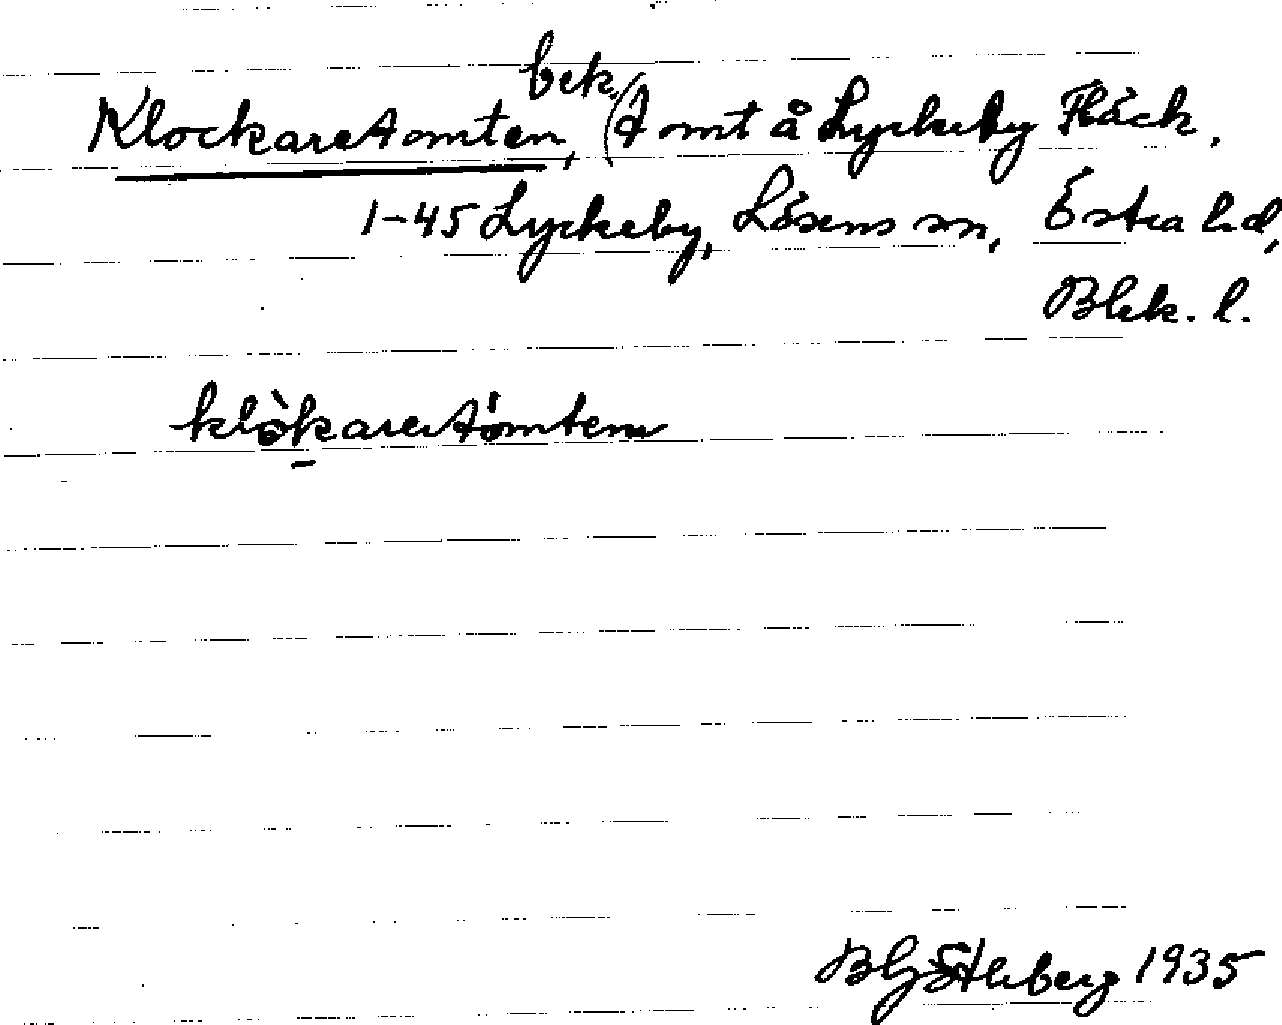 bek.
Klockaretomten, (tomt å Lyckeby Fläck,
1-45 Lyckeby, Lösens sn, Östra hd,
Blek. l.
klòkaretómten
1935